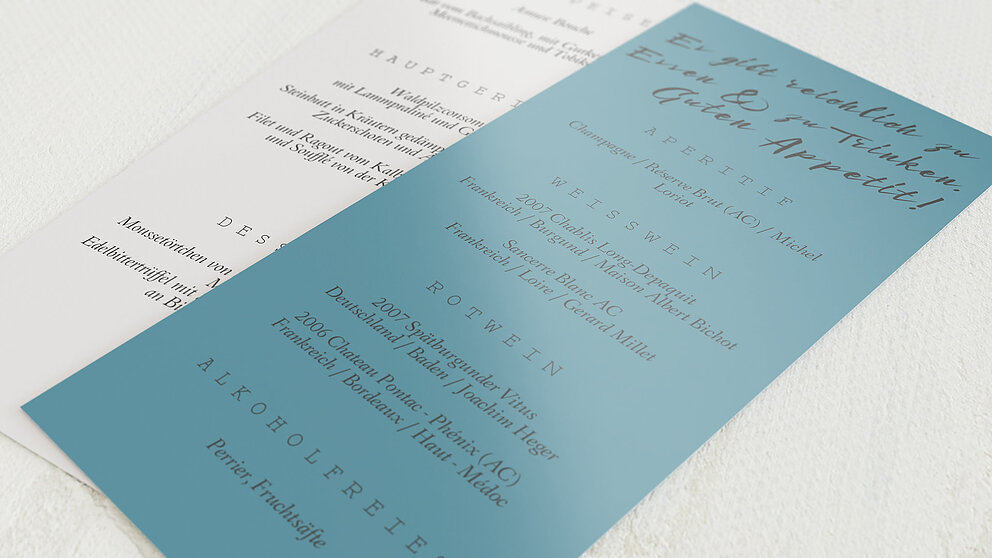 Amuse Bouche
vom Bachsaibling, mit Gurke
und Tobik
HAUPTGERI
Waldpilzconsom
mit Lammpraliné und G
Steinbutt in Kräutern gedämp
Zuckerschoten und
Filet und Ragout vom Kalb
und Soufflé von der K
DESS
Moussetörtchen von
Edelbittertrüffel mit
an Bi
Es gibt reichlich zu
Essen & zu Trinken.
Guten Appetit!
APERITIF
Champagne / Réserve Brut (AC) / Michel
Loriot
WEISSWEIN
2007 Chablis Long-Depaquit
Frankreich / Burgund / Maison Albert Bichot
Sancerre Blanc AC
Frankreich / Loire / Gerard Millet
ROTWEIN
2007 Spätburgunder Vitus
Deutschland / Baden / Joachim Heger
2006 Chateau Pontac - Phénix (AC)
Frankreich / Bordeaux / Haut - Médoc
ALKOHOLFREIES
Perrier, Fruchtsäfte